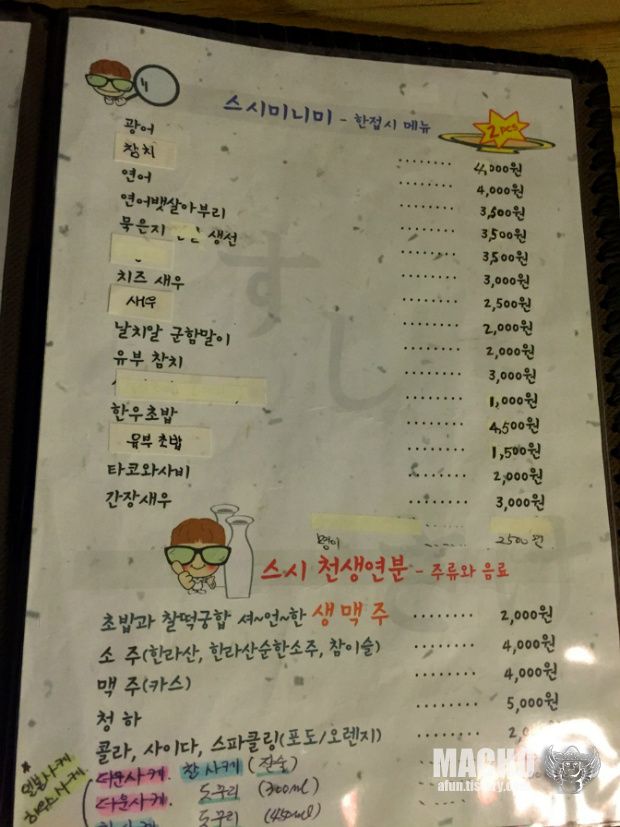 스시미니미 - 한접시 메뉴 2pcs
광어 ········ 4,000원
참치 ········ 4,000원
연어 ········ 3,500원
연어뱃살아부리 ········ 3,500원
묵은지 생선 ········ 3,500원
········ 3,000원
치즈 새우 ········ 2,500원
새우 ········ 2,000원
날치알 군함말이 ········ 2,000원
유부 참치 ········ 3,000원
········ 1,000원
한우초밥 ········ 4,500원
유부초밥 ········ 1,500원
타코와사비 ········ 2,000원
간장새우 ········ 3,000원
2500원
스시 천생연분 - 주류와 음료
초밥과 찰떡궁합 셔~언~한 생맥주 ········ 2,000원
소 주(한라산, 한라산순한소주, 참이슬) ········ 4,000원
맥 주(카스) ········ 4,000원
청 하 ········ 5,000원
콜라, 사이다, 스파클링(포도/오렌지) ········
따운사케 한사케 (잔술)
따운사케. 도쿠리 (300ml)
도쿠리 (450ml)
MACHO
afun.tistory.com